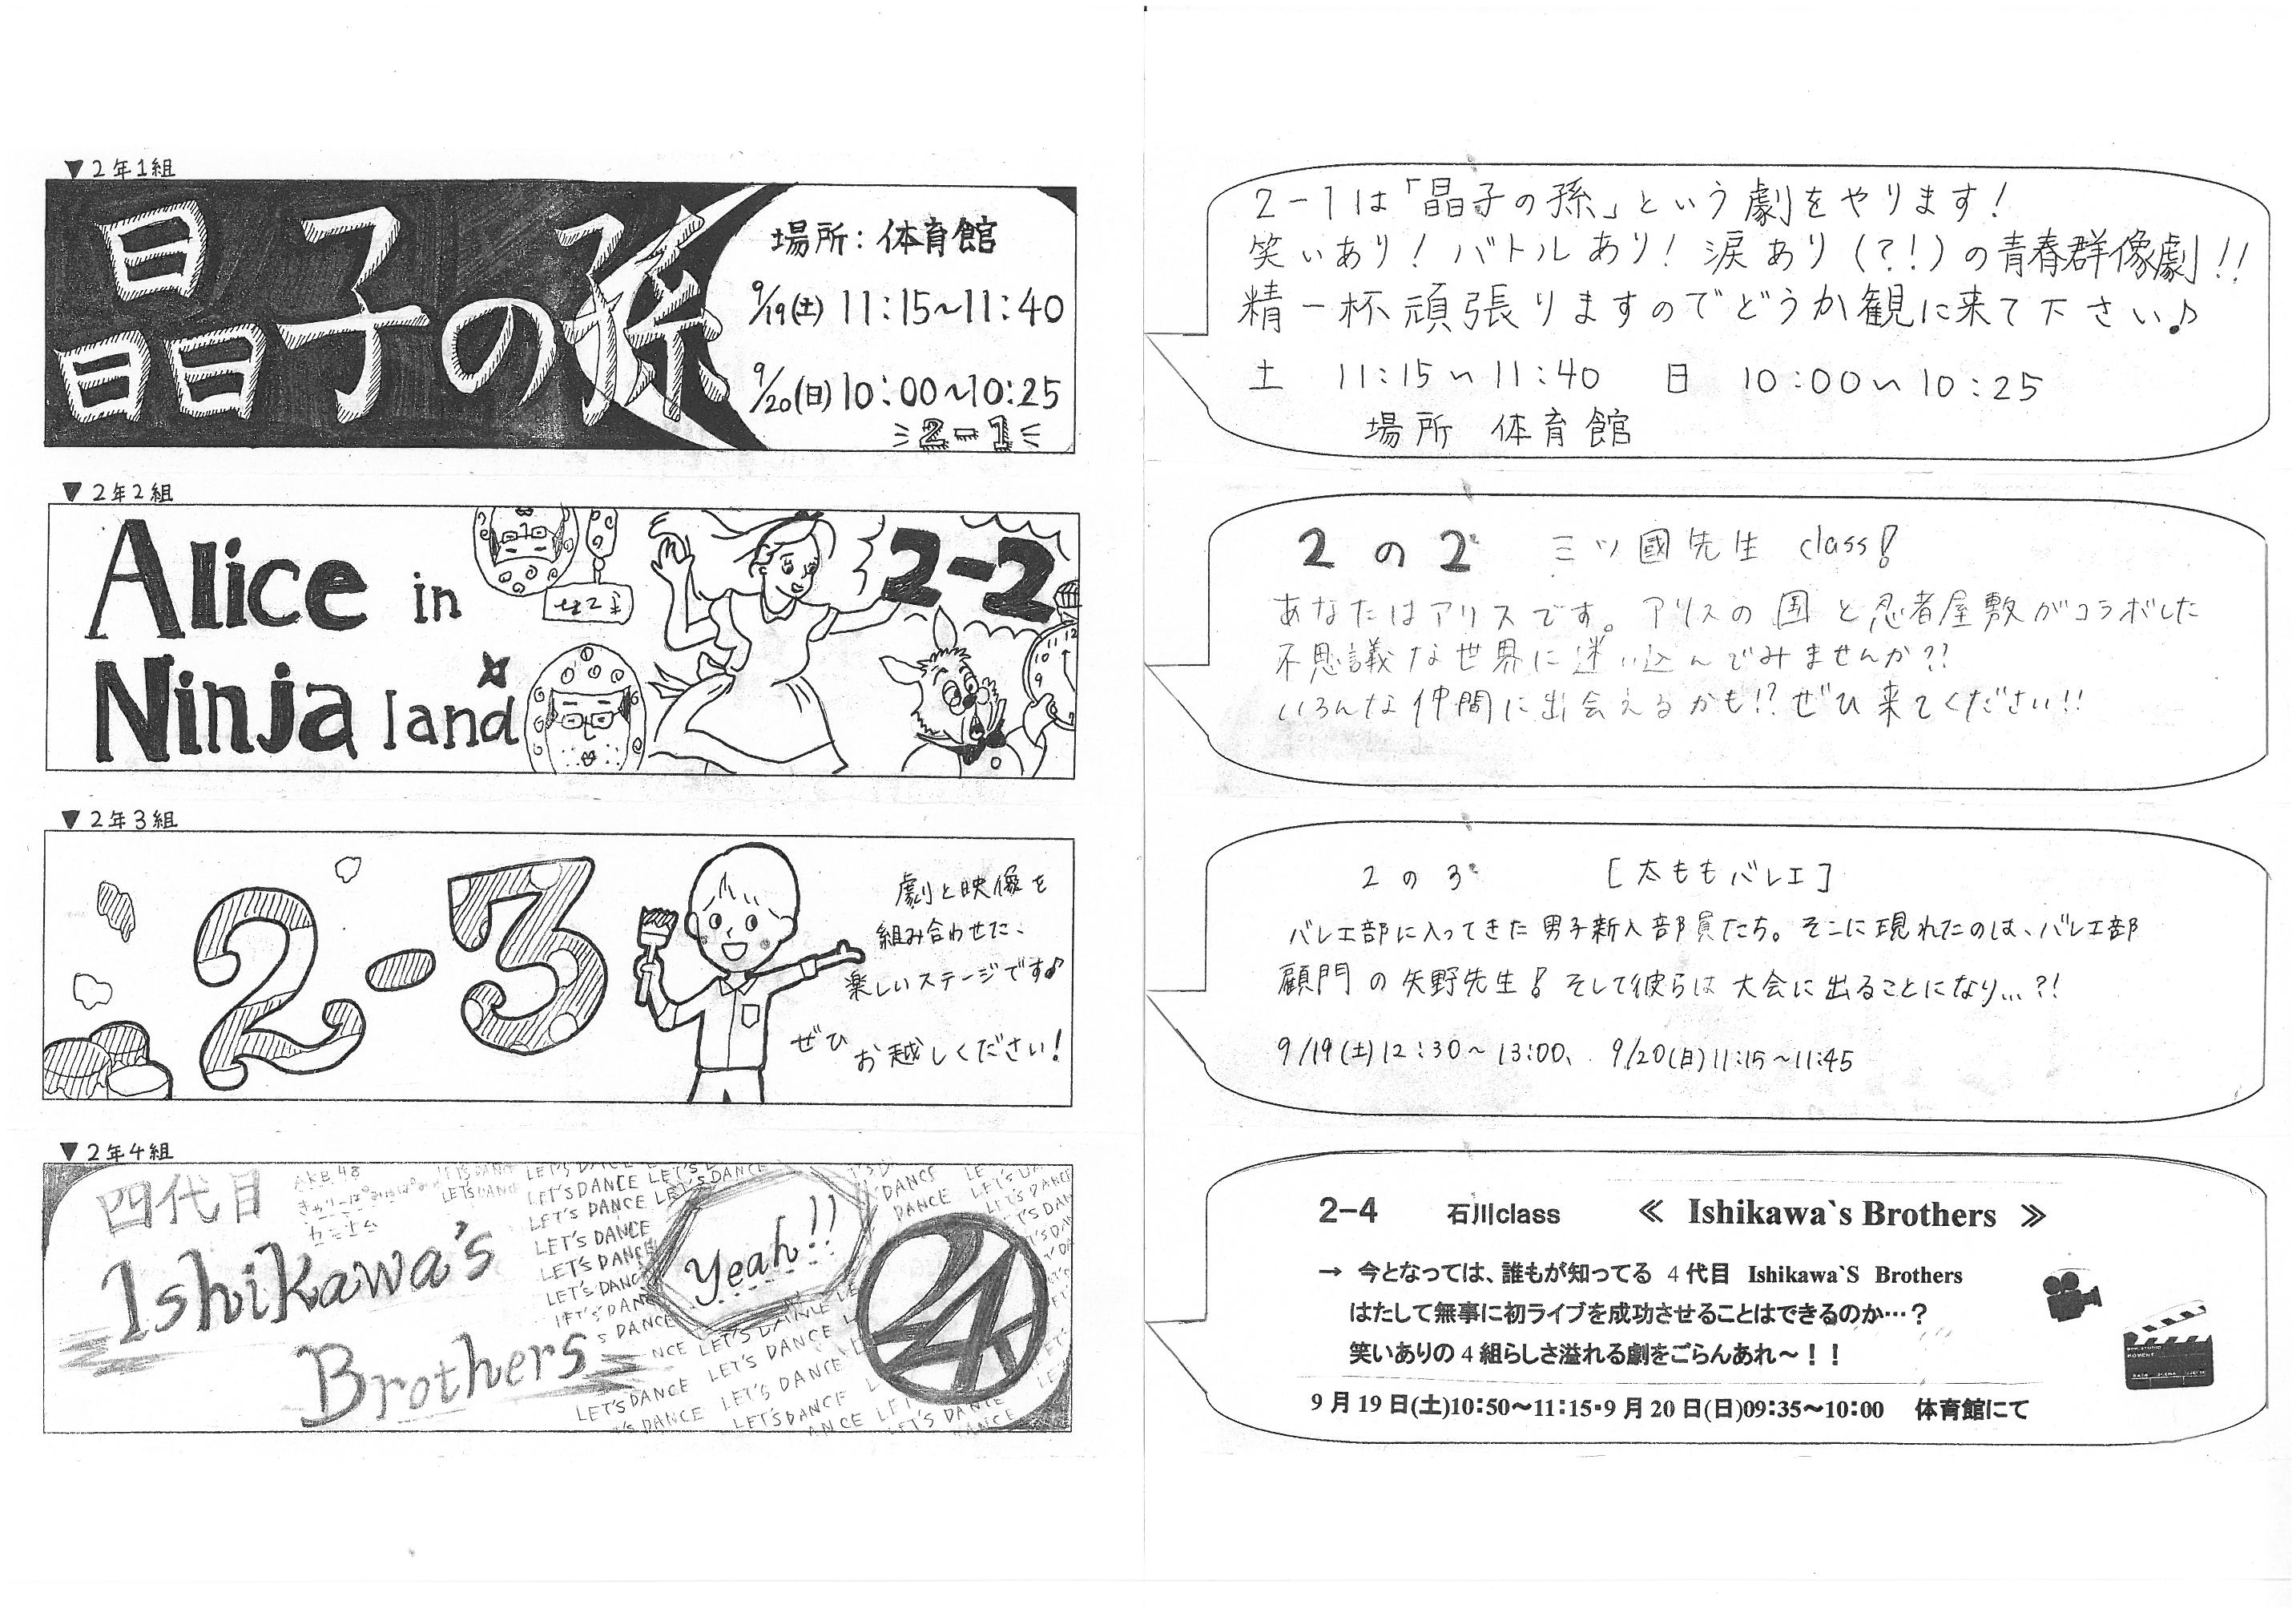 ▼2年1組
晶子の孫
場所：体育館
9/19(土) 11:15〜11:40
9/20(日) 10:00〜10:25
2-1
2-1は「晶子の孫」という劇をやります！
笑いあり！バトルあり！涙あり（?!）の青春群像劇!!
精一杯頑張りますのでどうか観に来て下さい♪
土 11:15〜11:40 日 10:00〜10:25
場所 体育館
▼2年2組
Alice in
Ninja land
2-2
2の2 三ツ國先生 class!
あなたはアリスです。アリスの国と忍者屋敷がコラボした
不思議な世界に迷い込んでみませんか??
いろんな仲間に出会えるかも!?ぜひ来てください!!
▼2年3組
2-3
劇と映像を
組み合わせた、
楽しいステージです♪
ぜひ
お越しください！
2の3 [太ももバレエ]
バレエ部に入ってきた男子新入部員たち。そこに現れたのは、バレエ部
顧問の矢野先生！そして彼らは大会に出ることになり...?!
9/19(土)12:30〜13:00、 9/20(日)11:15〜11:45
▼2年4組
四代目
AKB48
Ishikawa's
Brothers
LET'S DANCE
LET'S DANCE
LET'S DANCE
LET'S DANCE
LET'S DANCE
LET'S DANCE
Yeah!!
24
2-4 石川class ≪ Ishikawa`s Brothers ≫
→ 今となっては、誰もが知ってる 4代目 Ishikawa`S Brothers
はたして無事に初ライブを成功させることはできるのか…？
笑いありの4組らしさ溢れる劇をごらんあれ〜！！
9月19日(土)10:50〜11:15・9月20日(日)09:35〜10:00 体育館にて